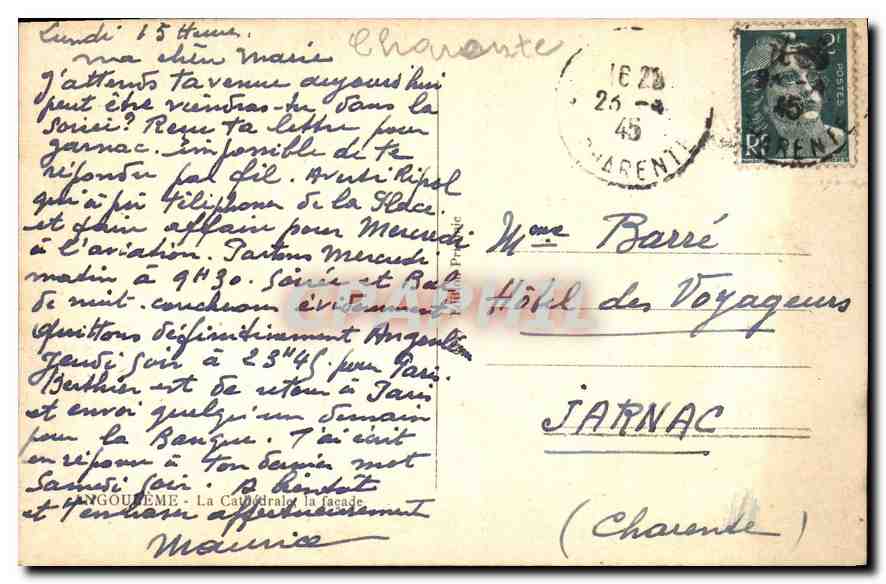 Lundi 15 Heures.
Ma chère Marie
J'attends ta venue aujourd'hui
peut être viendras-tu dans la
soirée? Reçu ta lettre pour
Jarnac. impossible de te
répondre par fil. Averti Ripol
qui a pu téléphoner de la Place.
et faire affaire pour Mercredi
à l'aviation. Partons Mercredi
matin à 9H30. Soirée et Bal
de nuit. coucherons évidemment
Quittons définitivement Angoulême
Jeudi soir à 23H45 pour Paris.
Berthier est de retour à Paris
et envoi quelqu'un demain
pour la Banque. J'ai écrit
en réponse à ton dernier mot
Samedi soir. A bientôt
ANGOULÊME - La Cathédrale, la façade
et t'embrasse affectueusement
Maurice
Charente
16 2
23 -4
45
CHARENTE
2F
POSTES
RF
45
CHARENTE
Edition
CPAPHIL
Mme Barré
Hôtel des Voyageurs
JARNAC
(Charente)